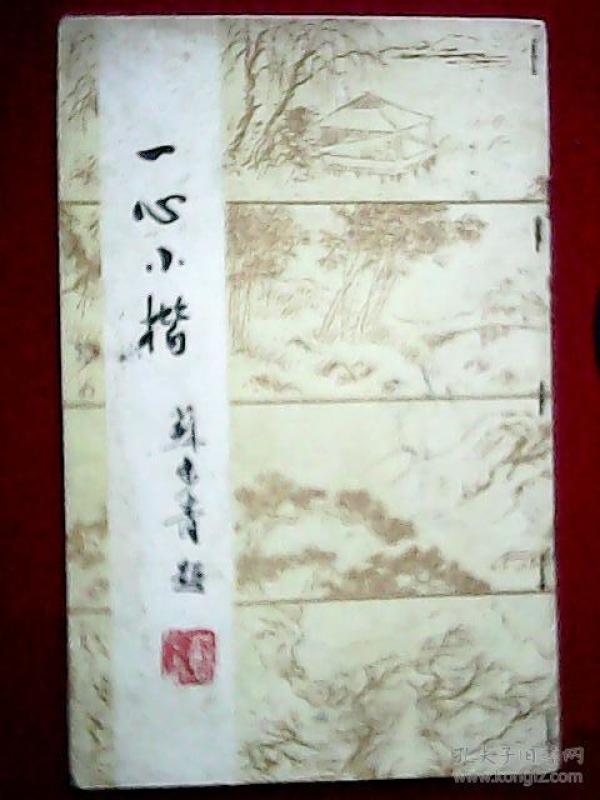 一心小楷
题
孔夫子旧书网
www.kongfz.com